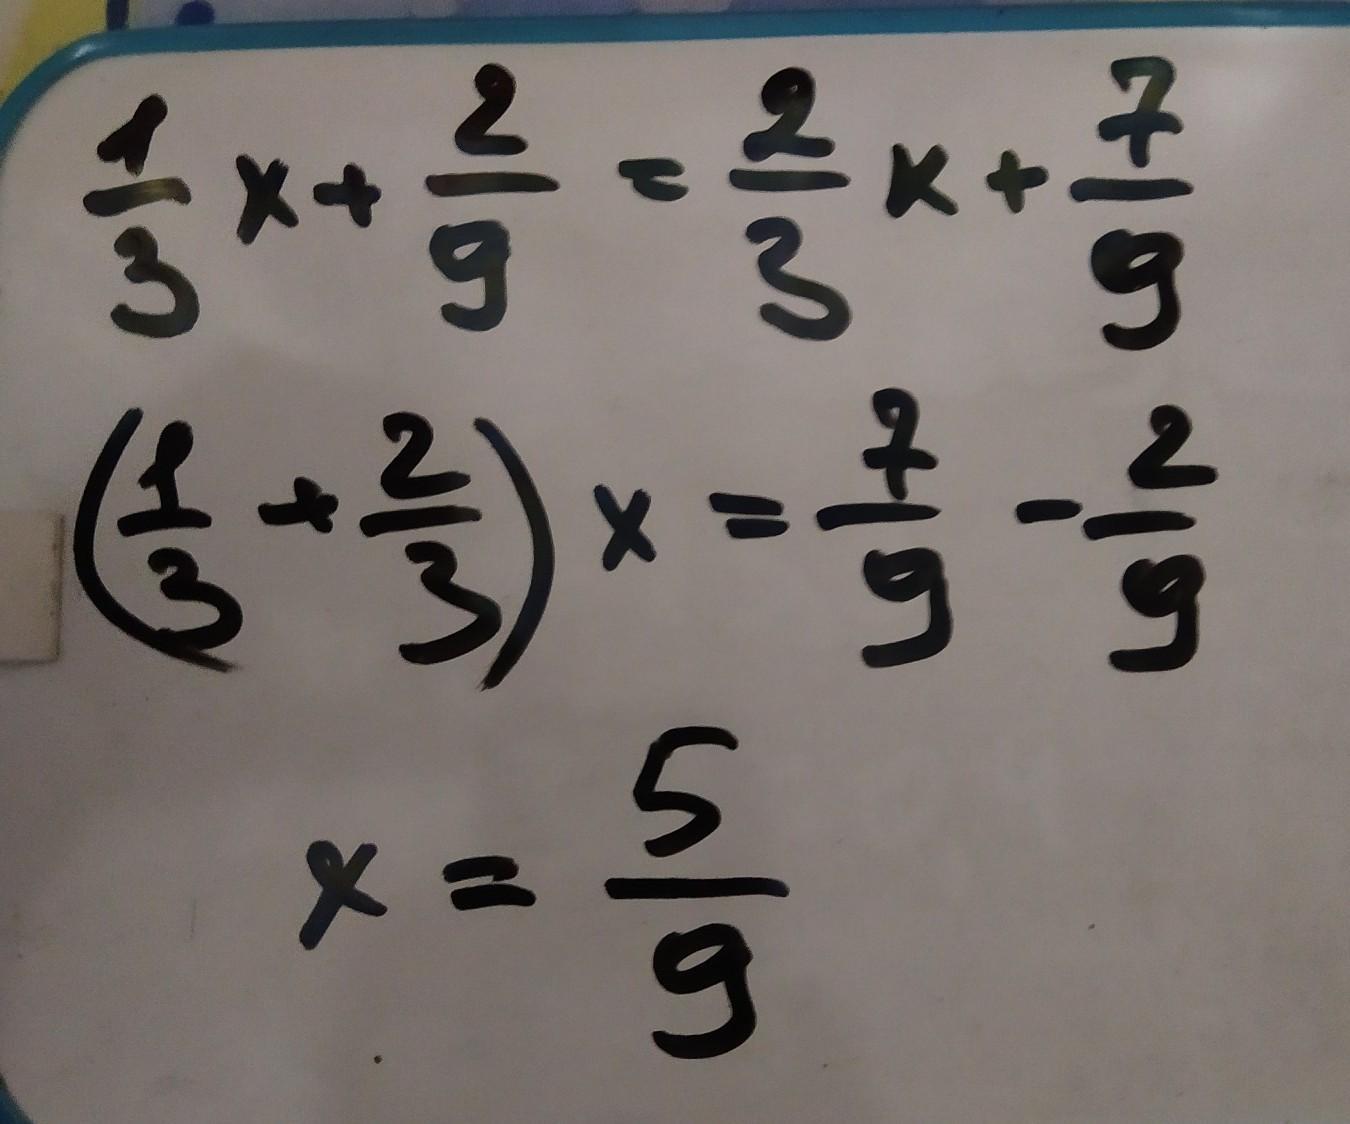 1/3 x + 2/9 = 2/3 x + 7/9
(1/3 + 2/3) x = 7/9 - 2/9
x = 5/9